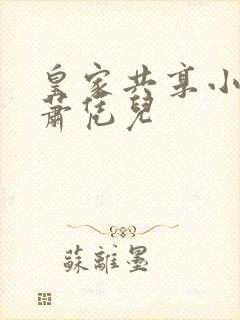 皇家共享小
蕭兒
蘇離墨